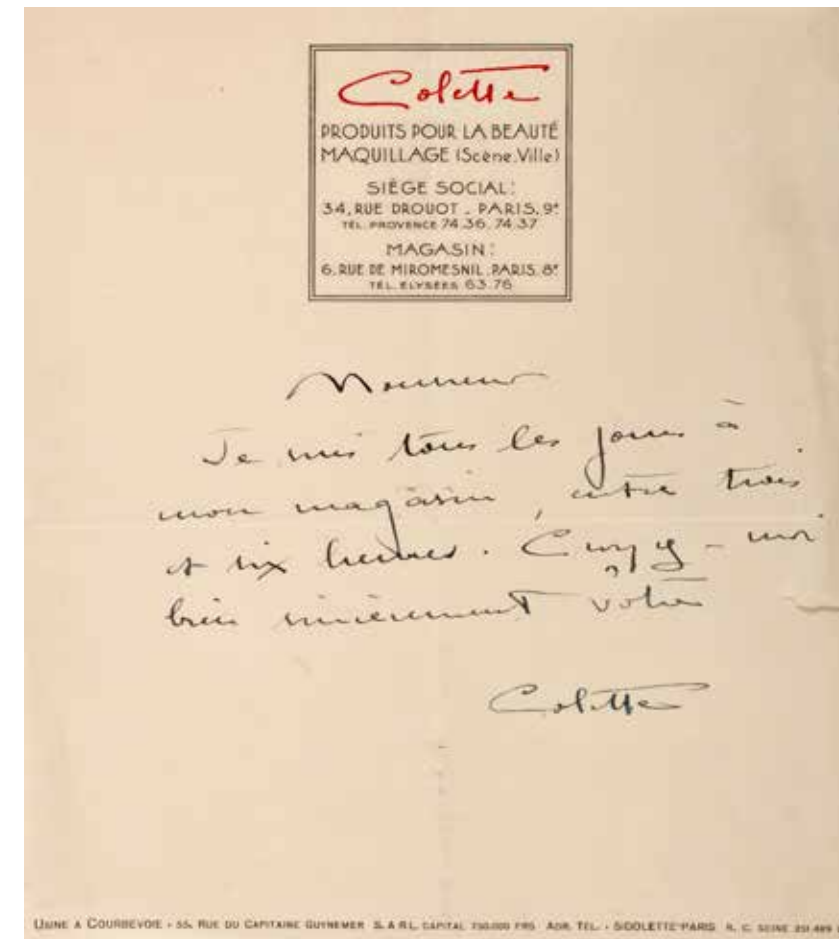 Colette
PRODUITS POUR LA BEAUTÉ
MAQUILLAGE (Scène, Ville)
SIÈGE SOCIAL:
34, RUE DROUOT - PARIS, 9e
TÉL. PROVENCE 74.36, 74.37
MAGASIN:
6, RUE DE MIROMESNIL, PARIS, 8e
TÉL. ELYSÉES 63.76
Monsieur
Je suis tous les jours à
mon magasin, entre trois
et six heures. Croyez-moi
bien sincèrement votre
Colette
USINE A COURBEVOIE - 55, RUE DU CAPITAINE GUYNEMER S.A.R.L. CAPITAL 750.000 FRS ADR. TÉL. - SIDOLETTE-PARIS R. C. SEINE 251.489